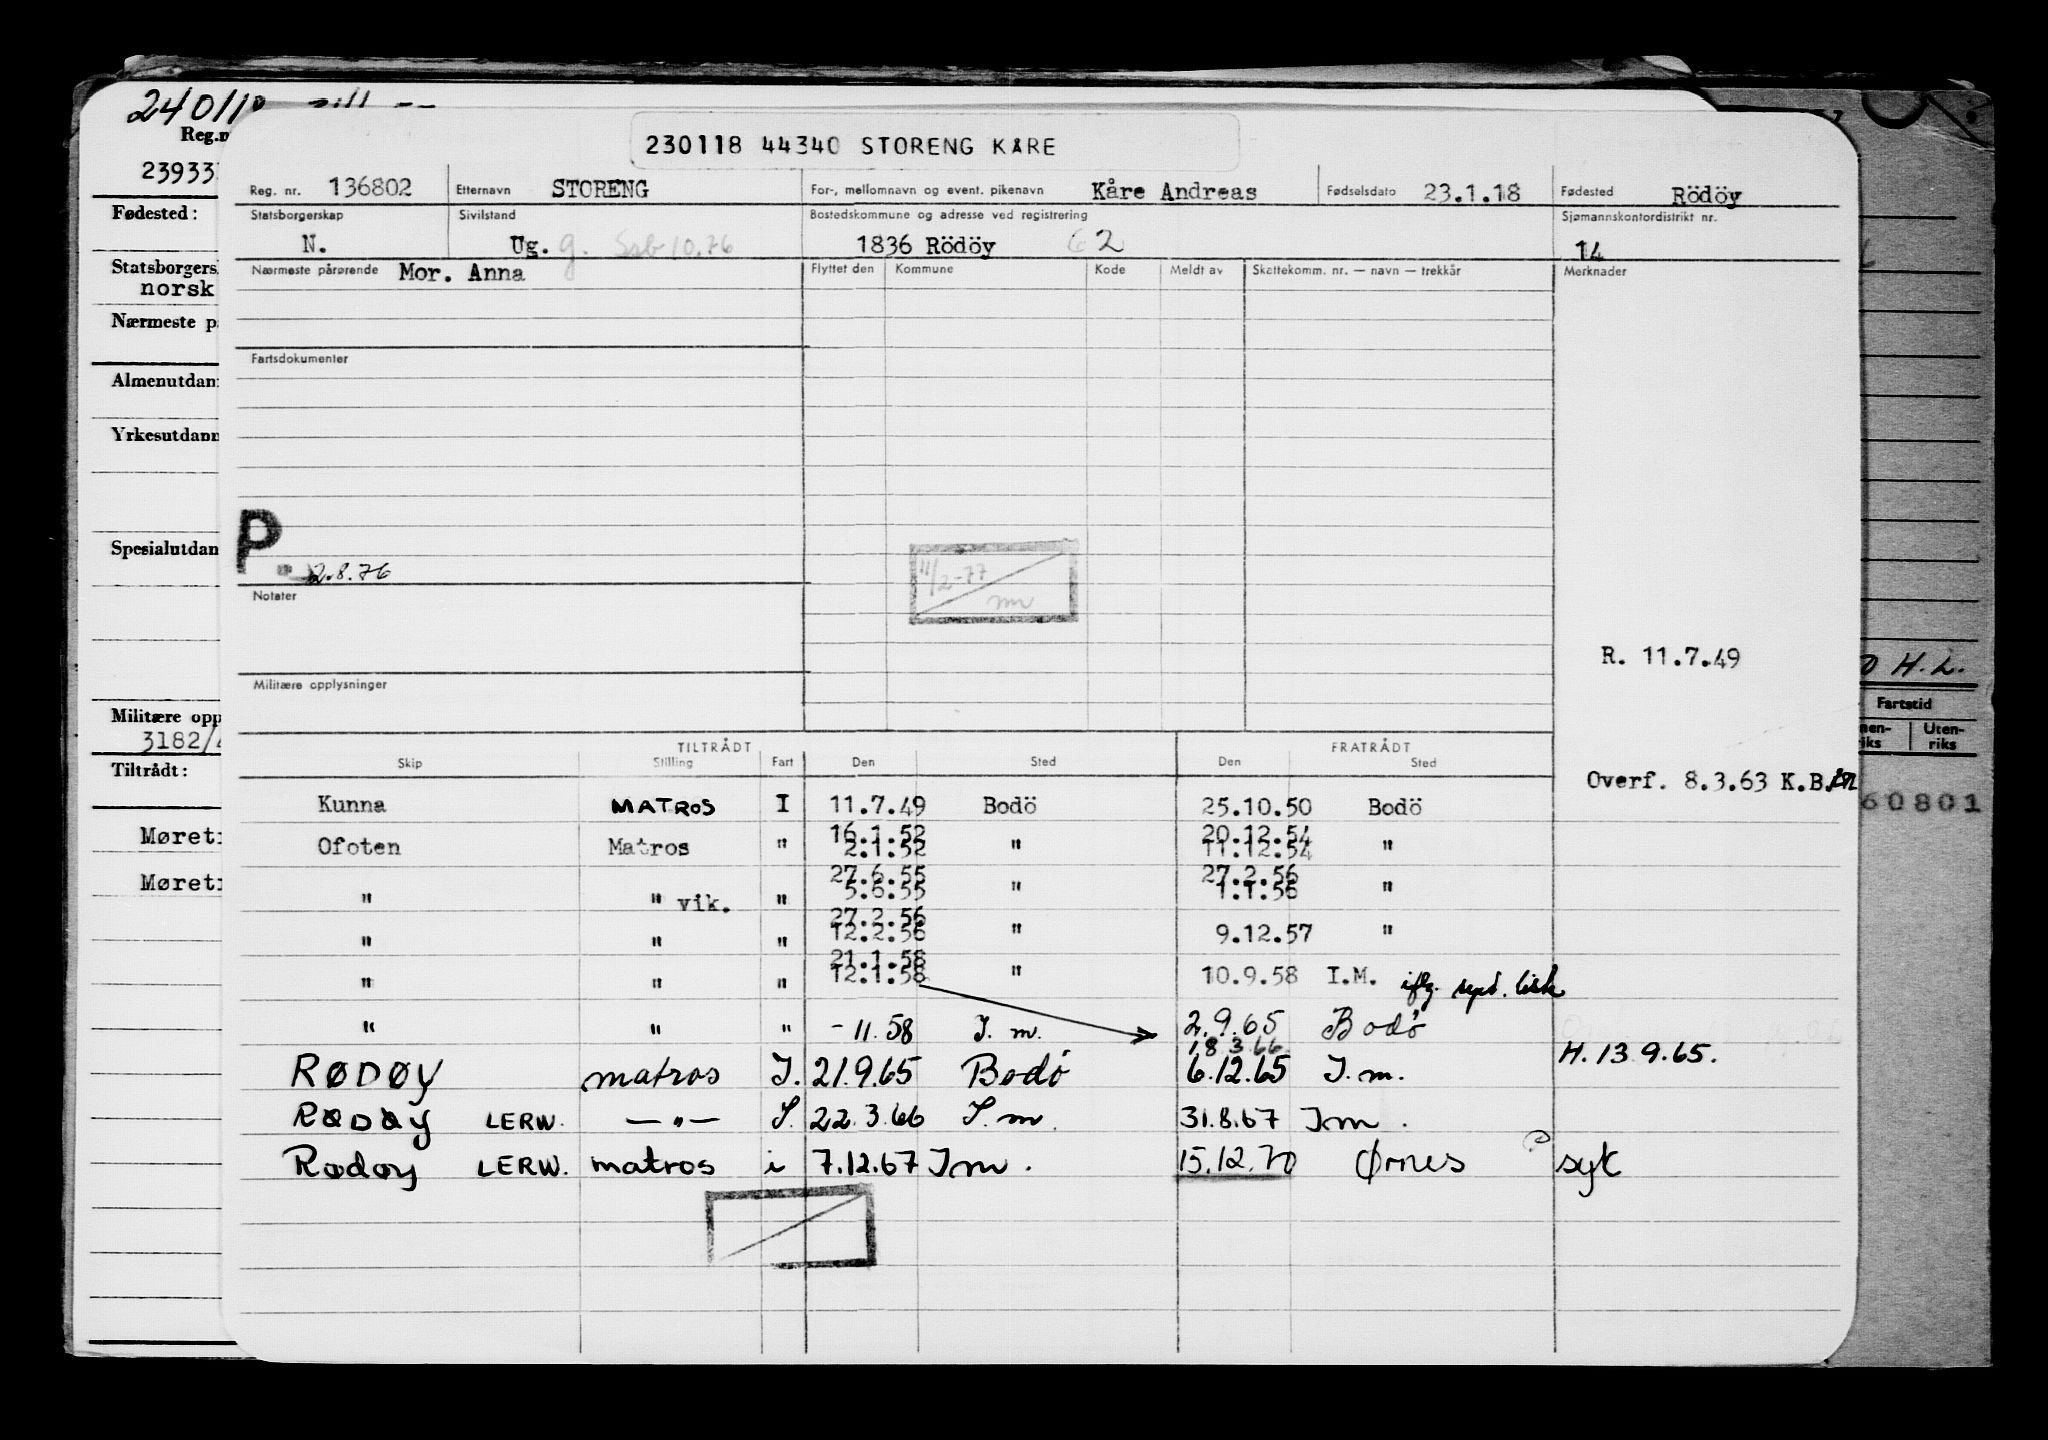 230118 44340 STORENG KÅRE
Reg. nr. 136802 Etternavn STORENG For-, mellomnavn og event. pikenavn Kåre Andreas Fødselsdato 23.1.18 Fødested Rödöy
Statsborgerskap N. Sivilstand Ug. g. Ssb 10.76 Bostedskommune og adresse ved registrering 1836 Rödöy 62 Sjømannskontordistrikt nr. 14
Nærmeste pårørende Mor. Anna Flyttet den Kommune Kode Meldt av Skattekomm. nr. — navn — trekkår Merknader
Fartsdokumenter
P
2.8.76
11/2-77
Notater
R. 11.7.49
Militære opplysninger
TILTRÅDT FRATRÅDT
Skip Stilling Fart Den Sted Den Sted
Overf. 8.3.63 K.B.
Kunna MATROS I 11.7.49 Bodö 25.10.50 Bodö
16.1.52 20.12.54
Ofoten Matros " 2.1.52 " 11.12.54 "
27.6.55 27.2.56
" " vik. " 5.6.55 " 1.1.56 "
27.2.56
" " " 12.2.56 " 9.12.57 "
21.1.58
" " " 12.1.58 " 10.9.58 I.M. iflg. sept. liste
" " " - 11.58 I.m. 2.9.65 Bodø
18 3 66
H. 13 9.65.
RØDØY matros I. 21.9.65 Bodø 6.12.65 I.m.
RØDØY LERW. —"— I. 22.3.66 I.m. 31.8.67 Im.
Rødøy LERW. matros i 7.12.67 Im. 15.12.70 Ørnes syk
240118
Reg.n
23933
Fødested:
Statsborgersk
norsk
Nærmeste p
Almenutdan
Yrkesutdann
Spesialutdan
Militære opp
3182/
Tiltrådt:
Møret
Møret
H.L.
Fartstid
nen-riks Uten-riks
60801